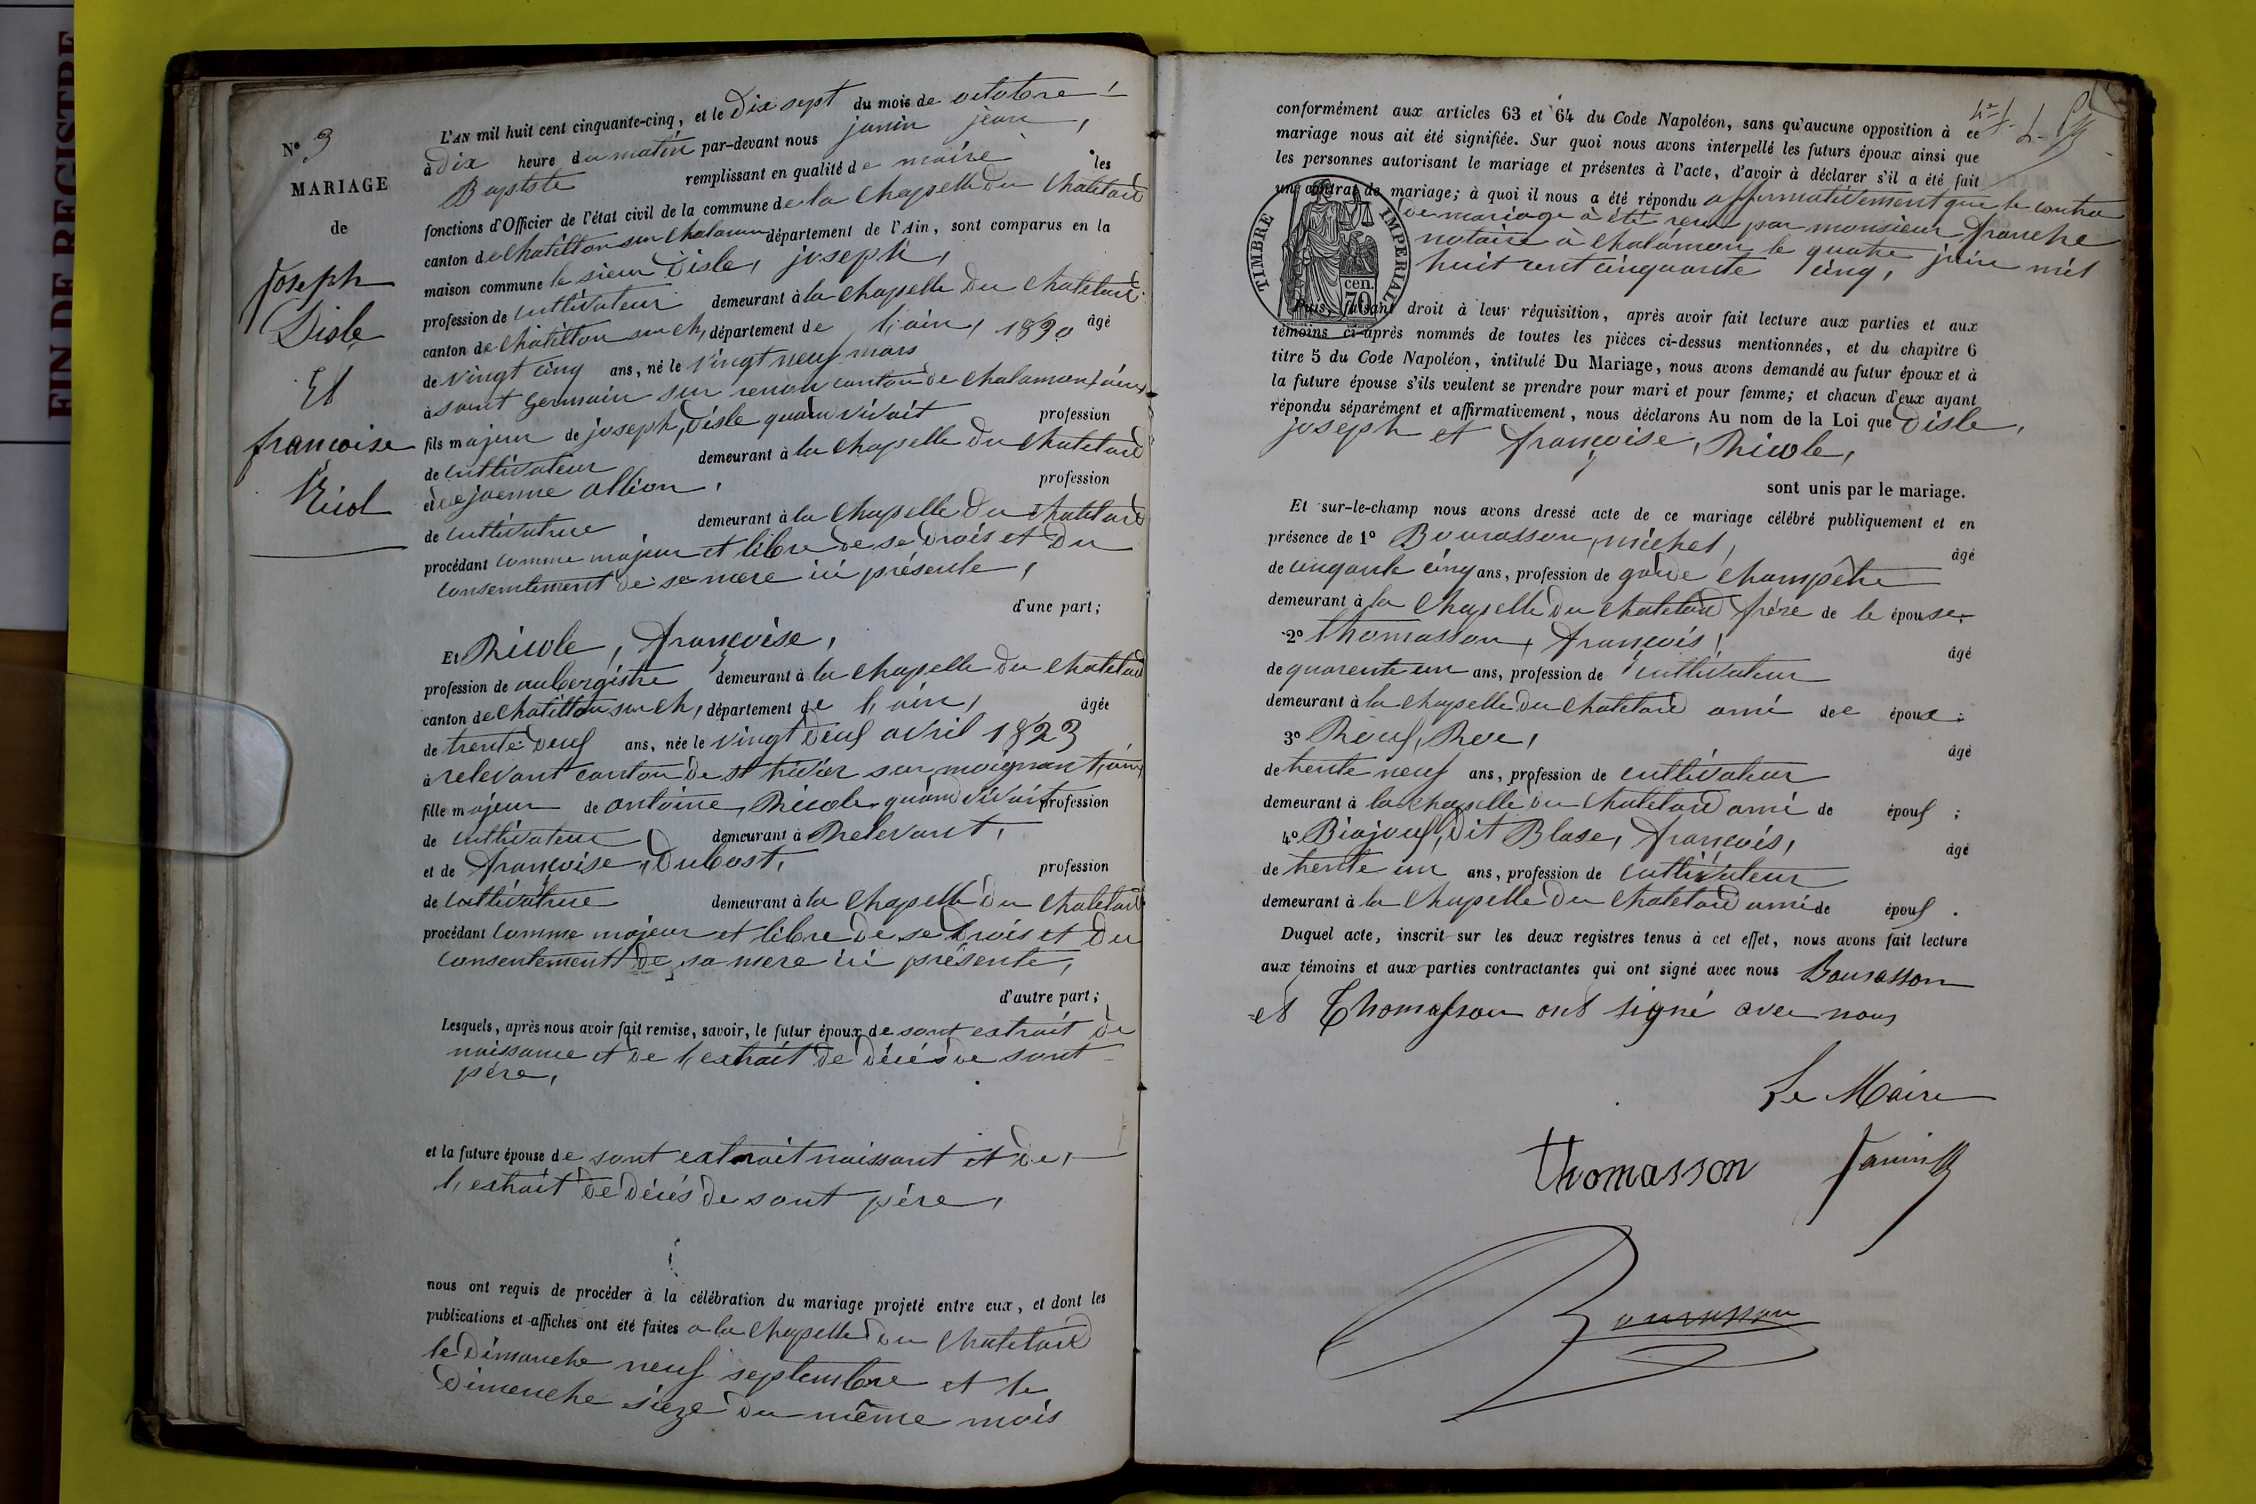 FIN DE REGISTRE
N° 3
MARIAGE
de
Joseph
Disle
Et
françoise
Ricol
L'AN mil huit cent cinquante-cinq, et le Dix sept du mois de octobre
à Dix heure du matin par-devant nous janin jean,
Baptste remplissant en qualité de maire les
fonctions d'Officier de l'état civil de la commune de la Chapelle Du Chatelard
canton de Chatillon sur Chalaronne département de l'Ain, sont comparus en la
maison commune le sieur Disle, joseph,
profession de cultivateur demeurant à la Chapelle Du Chatelard
canton de Chatillon sur ch, département de l,ain, 1830 âgé
de vingt cinq ans, né le vingt neuf mars
à saint Germain sur renon canton de Chalamont, ain,
fils majeur de joseph, Disle quand vivait profession
de cultivateur demeurant à la Chapelle Du Chatelard
et de jaenne allion, profession
de cultivatrice demeurant à la Chapelle Du Chatelard
procédant comme majeur et libre De se Drois et Du
consentement De sa mere ici présente,
d'une part;
Et Ricole, françoise,
profession de aubergiste demeurant à la Chapelle Du Chatelard
canton de Chatillon sur Ch, département de l,ain, âgée
de trente Deuf ans, née le vingt Deuf avril 1823
à relevant canton De st trivier sur moignan l,ain,
fille majeur de antoine, Ricole quand vivait profession
de cultivateur demeurant à Relevant,
et de françoise, Dubost, profession
de cultivatrice demeurant à la Chapelle Du Chatelard
procédant comme majeur et libre De se Drois et Du
consentement De sa mere ici présente,
d'autre part;
Lesquels, après nous avoir fait remise, savoir, le futur époux de sont extrait De
naissance et De l,extrait De Décés De sont
pére,
et la future épouse de sont extrait naissant et De,
l,extrait De Décés De sont pére,
nous ont requis de procéder à la célébration du mariage projeté entre eux, et dont les
publications et affiches ont été faites a la Chapelle Du Chatelard
le Dimanche neuf septembre et le
Dimenche sieze Du même mois
conformément aux articles 63 et 64 du Code Napoléon, sans qu'aucune opposition à ce
mariage nous ait été signifiée. Sur quoi nous avons interpellé les futurs époux ainsi que
les personnes autorisant le mariage et présentes à l'acte, d'avoir à déclarer s'il a été fait
un contrat de mariage; à quoi il nous a été répondu affirmativement que le contra
De mariage à été reçu par monsieur franche
notaire à Chalamon le quatre juin mil
huit cent cinquante cinq,
TIMBRE IMPERIAL
70 cen.
Puis, faisant droit à leur réquisition, après avoir fait lecture aux parties et aux
témoins ci-après nommés de toutes les pièces ci-dessus mentionnées, et du chapitre 6
titre 5 du Code Napoléon, intitulé Du Mariage, nous avons demandé au futur époux et à
la future épouse s'ils veulent se prendre pour mari et pour femme; et chacun d'eux ayant
répondu séparément et affirmativement, nous déclarons Au nom de la Loi que Disle,
joseph et françoise, Ricole,
sont unis par le mariage.
Et sur-le-champ nous avons dressé acte de ce mariage célébré publiquement et en
présence de 1° Bourasson, michel, âgé
de cinqante cinq ans, profession de garde Champêtre
demeurant à la Chapelle Du Chatelard frére de le épouse
2° Thomasson, françois, âgé
de quarente un ans, profession de cultivateur
demeurant à la Chapelle Du Chatelard ami de e époux;
3° Rouf, Roe, âgé
de trente neuf ans, profession de cultivateur
demeurant à la Chapelle Du Chatelard ami de épouf;
4° Biajouf, Dit Blase, françois, âgé
de trente un ans, profession de cultivateur
demeurant à la Chapelle Du Chatelard ami de épouf.
Duquel acte, inscrit sur les deux registres tenus à cet effet, nous avons fait lecture
aux témoins et aux parties contractantes qui ont signé avec nous Bourasson
et Thomasson ont signé avec nous
Le Maire
Thomasson Janin
Bourasson